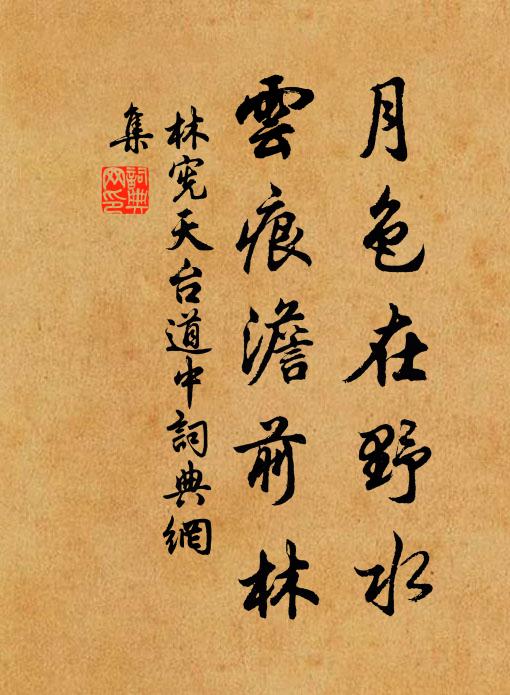 月色在野水
雲痕澹前林
林宪天台道中詞典網
集
詞典
网印